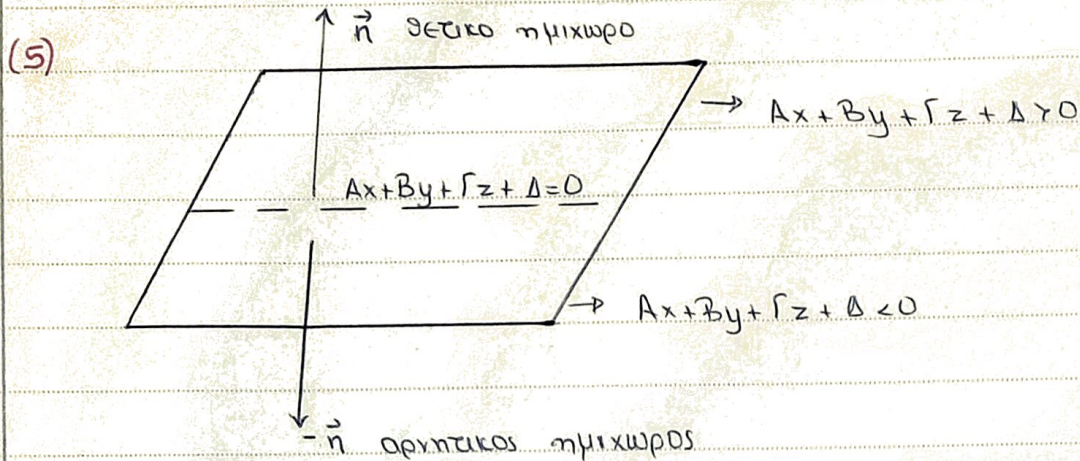 (5)
n⃗ θετικο ημιχωρο
→ Ax + By + Γz + Δ > 0
Ax + By + Γz + Δ = 0
→ Ax + By + Γz + Δ < 0
-n⃗ αρνητικος ημιχωρος